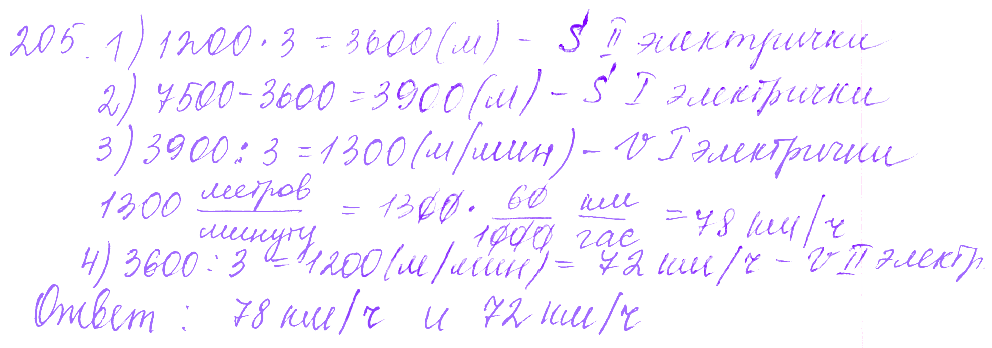 205. 1) 1200 · 3 = 3600 (м) - S II электрички
2) 7500 - 3600 = 3900 (м) - S I электрички
3) 3900 : 3 = 1300 (м/мин) - v I электрички
1300 метров/минуту = 1300 · 60/1000 км/час = 78 км/ч
4) 3600 : 3 = 1200 (м/мин) = 72 км/ч - v II электр.
Ответ : 78 км/ч и 72 км/ч